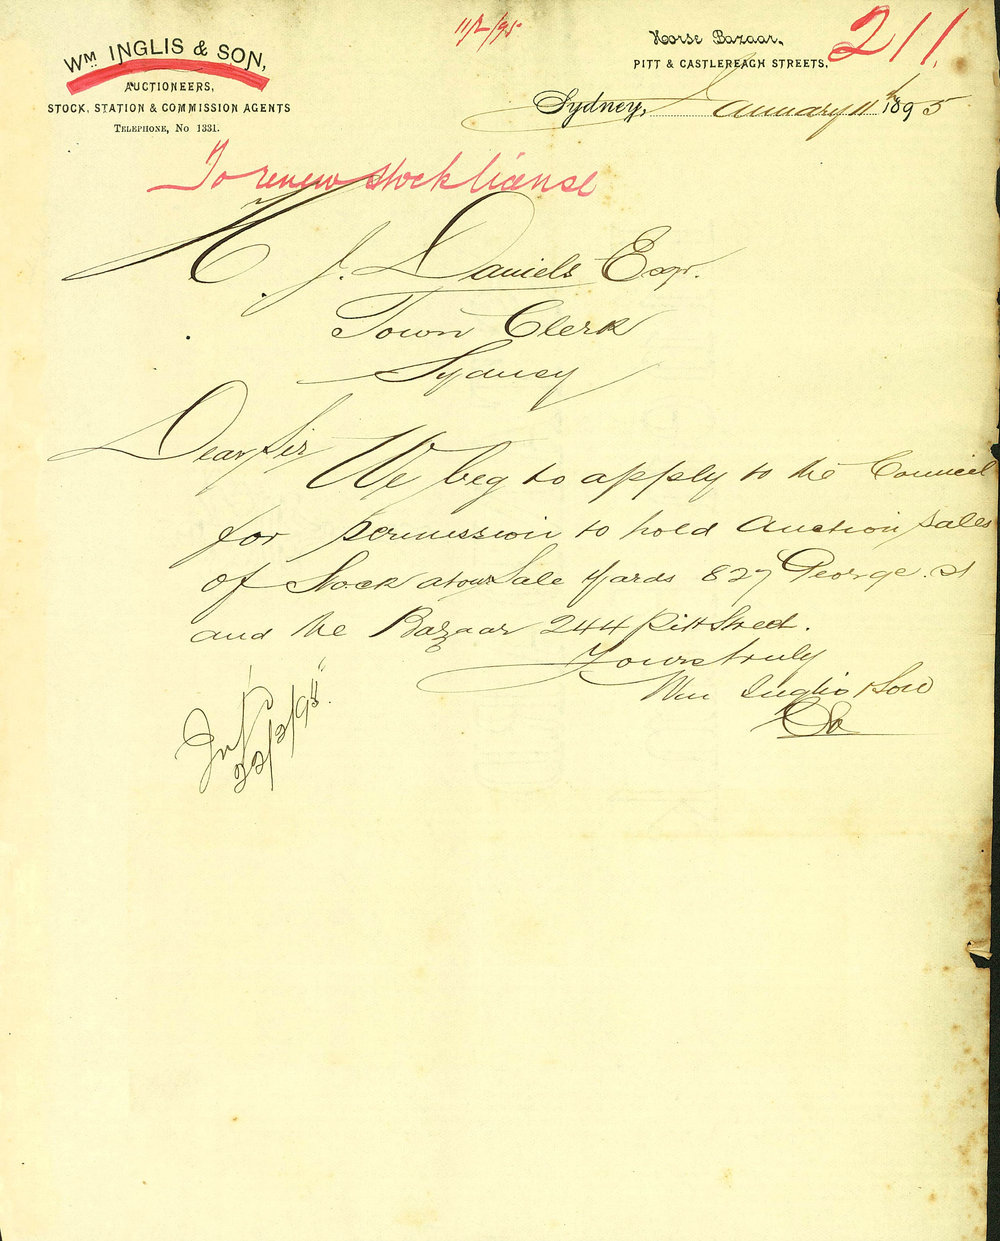 11/2/95
211.
WM INGLIS & SON,
AUCTIONEERS,
STOCK, STATION & COMMISSION AGENTS
TELEPHONE, No 1331.
Horse Bazaar,
PITT & CASTLEREAGH STREETS,
Sydney, January 11th 1895
To renew stock license
H. J. Daniels Esqr.
Town Clerk
Sydney
Dear Sir
We beg to apply to the Council
for permission to hold Auction sales
of Stock at our Sale Yards 827 George St
and the Bazaar 244 Pitt Street.
Yours truly
Wm Inglis & Son
22/2/95